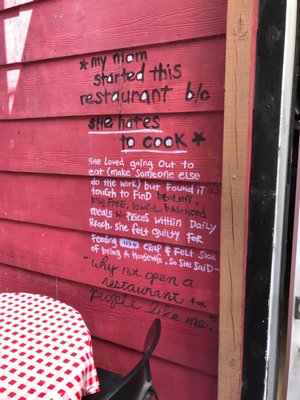 *my mom
started this
restaurant b/c
she hates
to cook*
She loved going out to
eat (make someone else
do the work) but found it
tough to find healthy,
msg free, balanced
meals w/ prices within daily
reach. She felt guilty for
feeding crap & felt sick
of being a housewife, so she said—
"Why not open a
restaurant for
people like me."